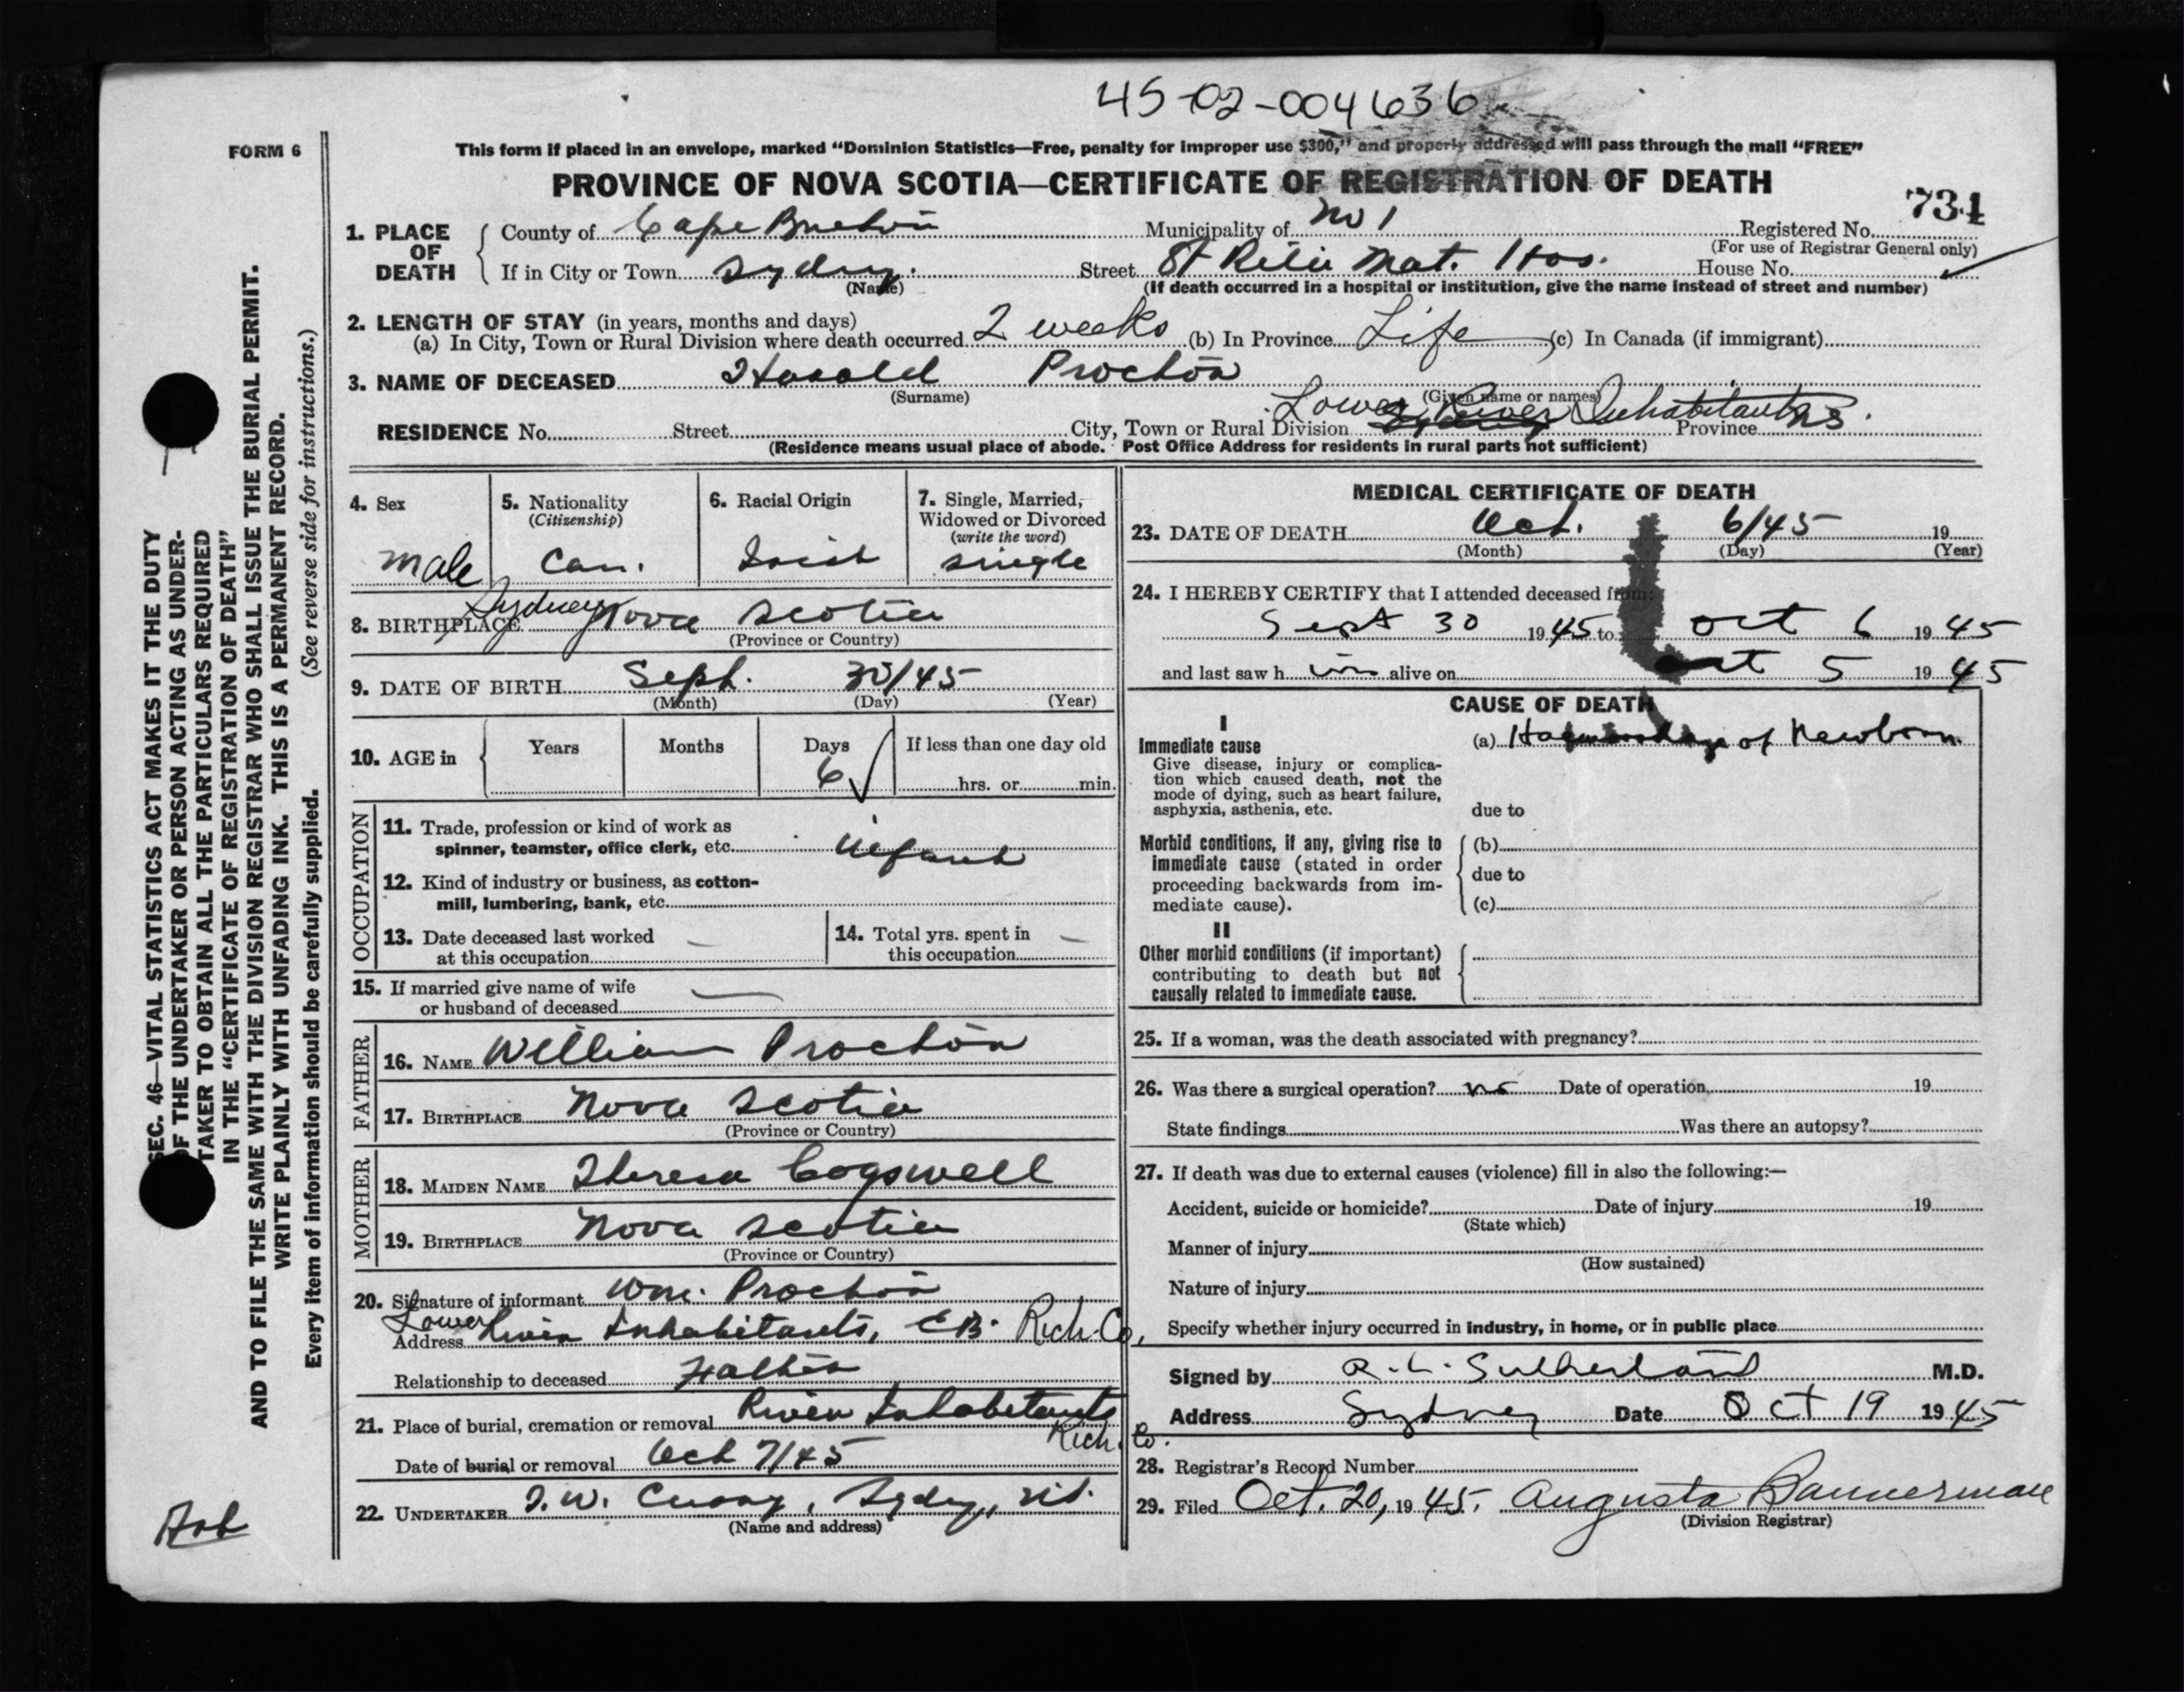 45-02-004636
FORM 6
This form if placed in an envelope, marked "Dominion Statistics—Free, penalty for improper use $300," and properly addressed will pass through the mail "FREE"
PROVINCE OF NOVA SCOTIA—CERTIFICATE OF REGISTRATION OF DEATH
734
1. PLACE OF DEATH { County of Cape Breton Municipality of No 1 Registered No.
(For use of Registrar General only)
If in City or Town Sydney. Street St Rita Mat. Hos. House No.
(Name) (If death occurred in a hospital or institution, give the name instead of street and number)
2. LENGTH OF STAY (in years, months and days)
(a) In City, Town or Rural Division where death occurred 2 weeks (b) In Province Life (c) In Canada (if immigrant)
3. NAME OF DECEASED Harold Proctor
(Surname) (Given name or names)
Lower River Inhabitants NS.
RESIDENCE No. Street City, Town or Rural Division Sydney Province
(Residence means usual place of abode. Post Office Address for residents in rural parts not sufficient)
4. Sex
Male
5. Nationality
(Citizenship)
Can.
6. Racial Origin
Irish
7. Single, Married,
Widowed or Divorced
(write the word)
single
8. BIRTHPLACE Sydney Nova Scotia
(Province or Country)
9. DATE OF BIRTH Sept. 30/45
(Month) (Day) (Year)
10. AGE in { Years Months Days If less than one day old
6 hrs. or min.
OCCUPATION
11. Trade, profession or kind of work as
spinner, teamster, office clerk, etc. infant
12. Kind of industry or business, as cotton-
mill, lumbering, bank, etc.
13. Date deceased last worked
at this occupation —
14. Total yrs. spent in
this occupation —
15. If married give name of wife
or husband of deceased —
FATHER
16. NAME William Proctor
17. BIRTHPLACE Nova Scotia
(Province or Country)
MOTHER
18. MAIDEN NAME Theresa Cogswell
19. BIRTHPLACE Nova Scotia
(Province or Country)
20. Signature of informant Wm. Proctor
Address Lower River Inhabitants, C.B. Rich. Co.
Relationship to deceased Father
21. Place of burial, cremation or removal River Inhabitants
Rich. Co.
Date of burial or removal Oct 7/45
22. UNDERTAKER T.W. Curry, Sydney, N.S.
(Name and address)
MEDICAL CERTIFICATE OF DEATH
23. DATE OF DEATH Oct. 6/45 19
(Month) (Day) (Year)
24. I HEREBY CERTIFY that I attended deceased from:
Sept 30 1945 to Oct 6 1945
and last saw him alive on Oct 5 1945
CAUSE OF DEATH
I
Immediate cause (a) Haemorrhage of Newborn
Give disease, injury or complica-
tion which caused death, not the
mode of dying, such as heart failure,
asphyxia, asthenia, etc. due to
Morbid conditions, if any, giving rise to (b)
immediate cause (stated in order
proceeding backwards from im- due to
mediate cause). (c)
II
Other morbid conditions (if important)
contributing to death but not
causally related to immediate cause.
25. If a woman, was the death associated with pregnancy?
26. Was there a surgical operation? no Date of operation 19
State findings Was there an autopsy?
27. If death was due to external causes (violence) fill in also the following:—
Accident, suicide or homicide? Date of injury 19
(State which)
Manner of injury
(How sustained)
Nature of injury
Specify whether injury occurred in industry, in home, or in public place
Signed by R. L. Sutherland M.D.
Address Sydney Date Oct 19 1945
28. Registrar's Record Number
29. Filed Oct. 20, 1945. Augusta Bannerman
(Division Registrar)
SEC. 46—VITAL STATISTICS ACT MAKES IT THE DUTY
OF THE UNDERTAKER OR PERSON ACTING AS UNDER-
TAKER TO OBTAIN ALL THE PARTICULARS REQUIRED
IN THE "CERTIFICATE OF REGISTRATION OF DEATH"
AND TO FILE THE SAME WITH THE DIVISION REGISTRAR WHO SHALL ISSUE THE BURIAL PERMIT.
WRITE PLAINLY WITH UNFADING INK. THIS IS A PERMANENT RECORD.
Every item of information should be carefully supplied. (See reverse side for instructions.)